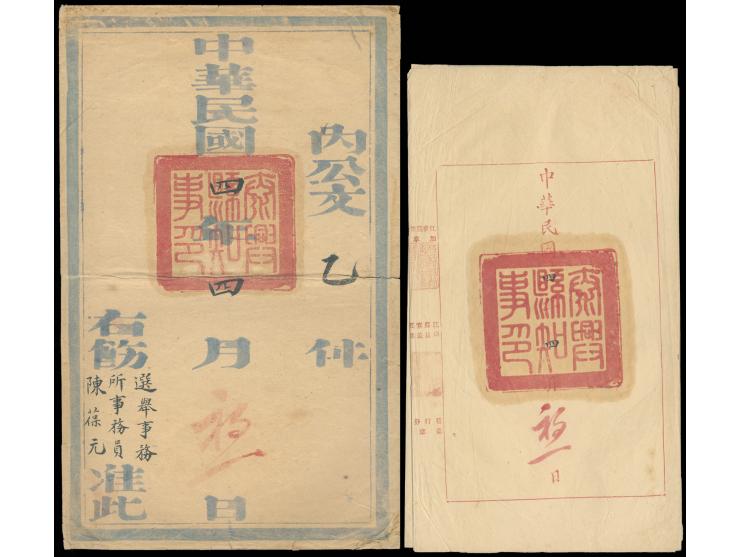 內公文乙件
中華民國四年四月初一日
右飭
選舉事務
所事務員
陳葆元
准此
泰興縣知事印
中華民國四年四月初一日
泰興縣知事印